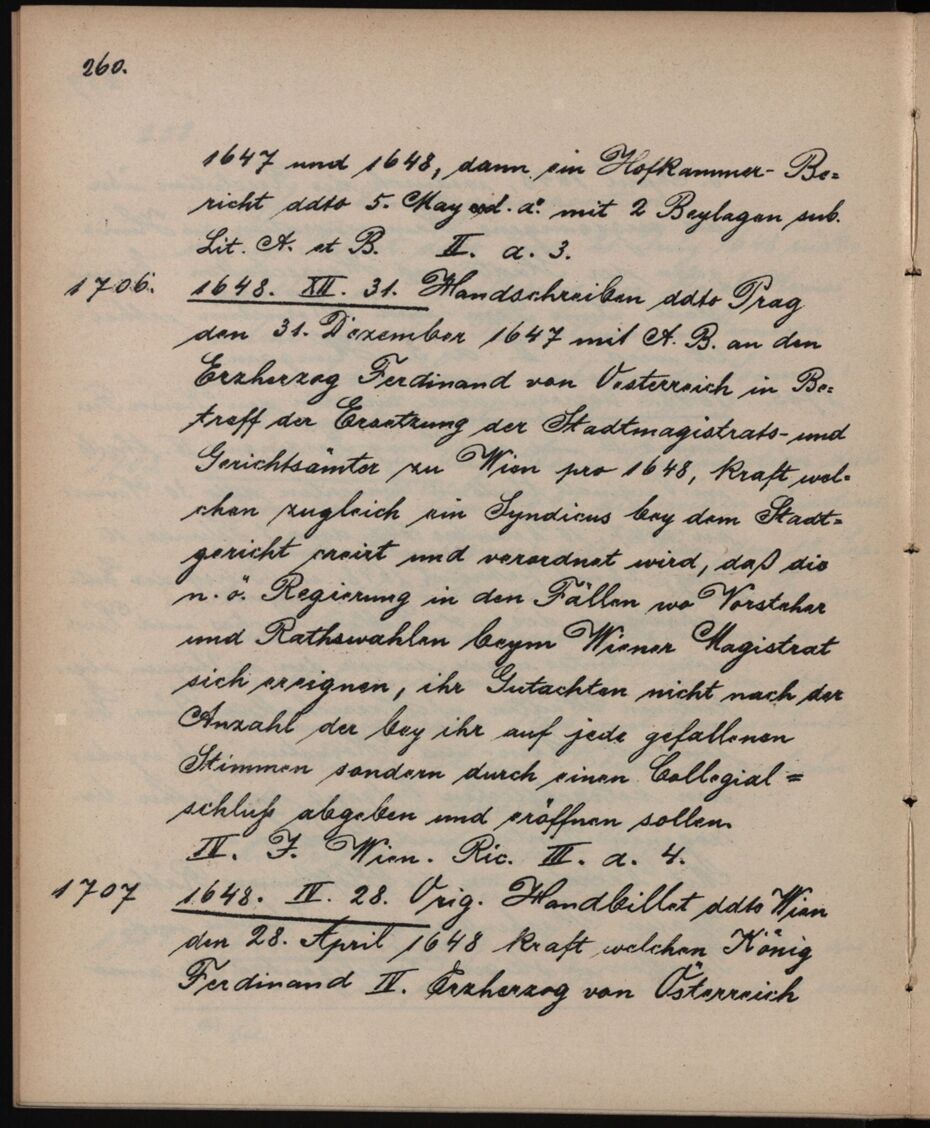 260.
1647 und 1648, dann ein Hofkammer- Be=
richt ddto 5. May ed. ao. mit 2 Beylagen sub.
Lit. A. et B. II. a. 3.
1706. 1648. XII. 31. Handschreiben ddto Prag
den 31. Dezember 1647 mit A. B. an den
Erzherzog Ferdinand von Oesterreich in Be=
treff der Ersetzung der Stadtmagistrats- und
Gerichtsämter zu Wien pro 1648, kraft wel=
chen zugleich ein Syndicus bey dem Stadt=
gericht creirt und verordnet wird, daß die
n. ö. Regierung in den Fällen wo Vorsteher
und Rathswahlen beym Wiener Magistrat
sich ereignen, ihr Gutachten nicht nach der
Anzahl der bey ihr auf jede gefallenen
Stimmen sondern durch einen Collegial=
schluß abgeben und eröffnen sollen.
IV. F. Wien. Ric. III. a. 4.
1707 1648. IV. 28. Orig. Handbillet ddto Wien
den 28. April 1648 kraft welchen König
Ferdinand IV. Erzherzog von Österreich